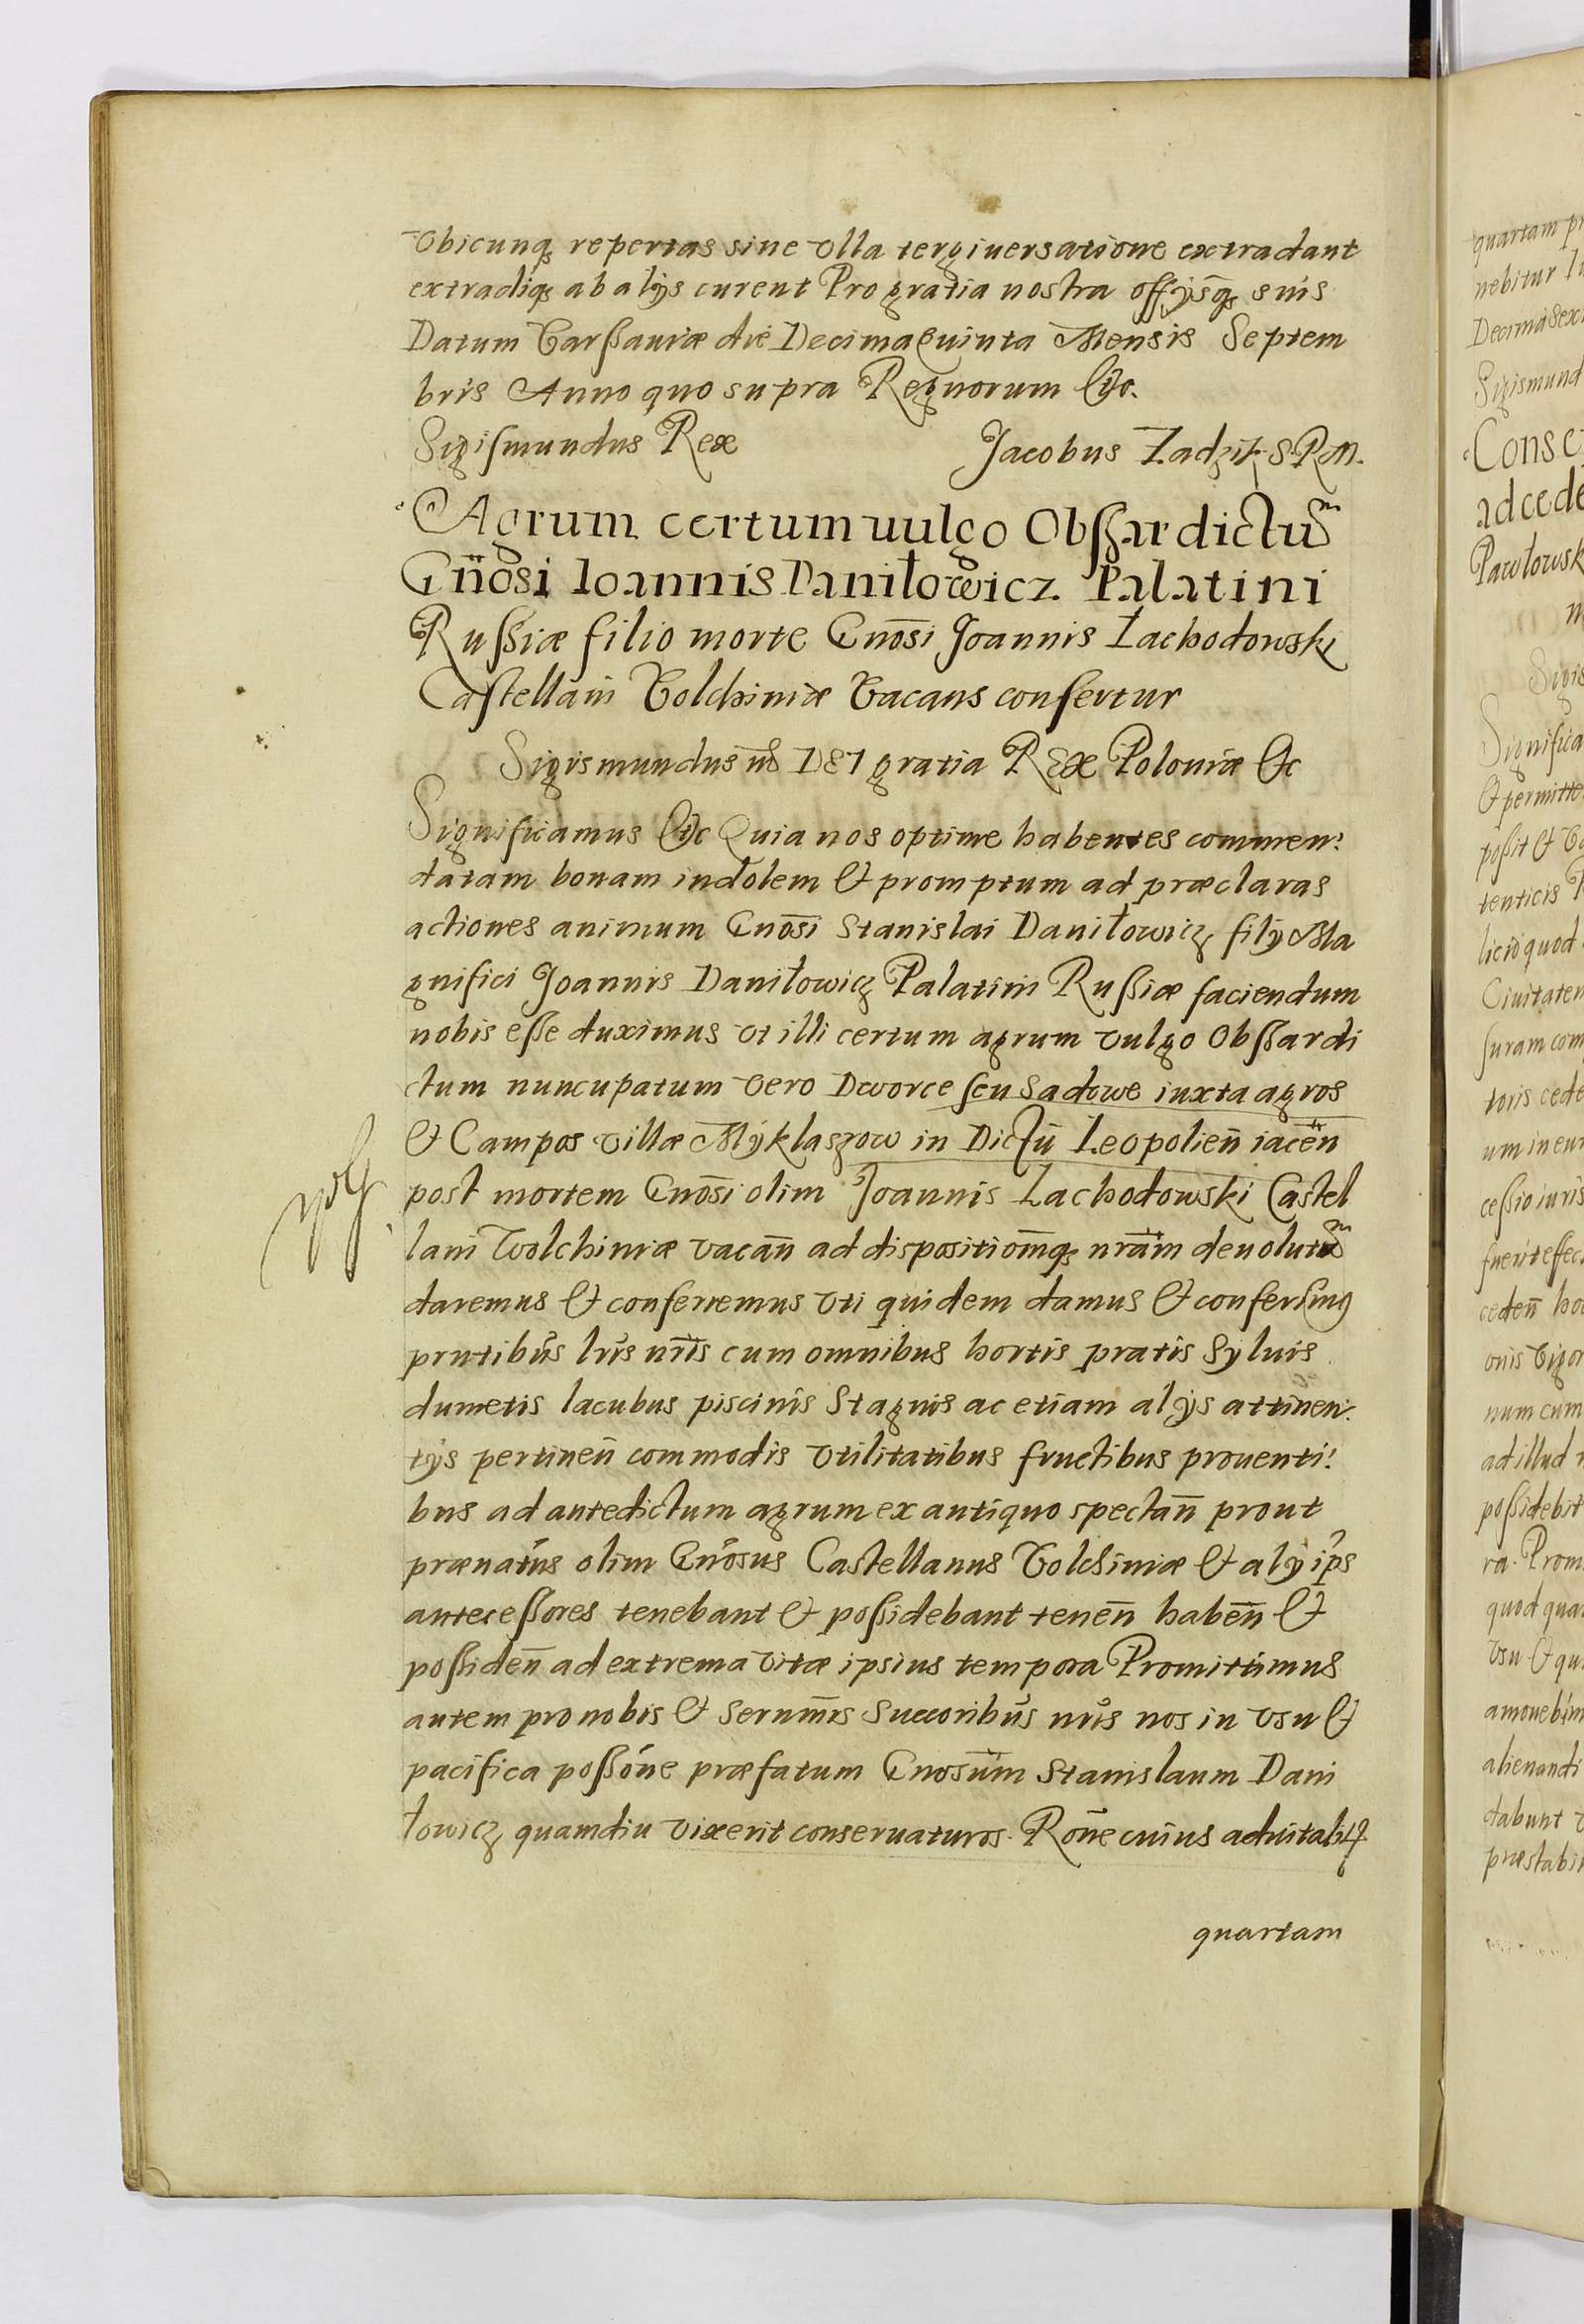 Vbicunq, repertas sine vlla tergiuersatione extradant
extradiq, ab alÿs curent Pro gratia nostra offÿsq, suis
Datum Varßauiæ die Decima Quinta Mensis Septem
bris Anno quo supra Regnorum &c.
Sigismundus Rex Jacobus Zadzik S.R.M.
Agrum certum uulgo Obßar dictum
Gnosi Ioannis Daniłowicz Palatini
Rußiæ filio morte Gnosi Joannis Zachodowski
Castellani Volchiniæ Vacans confertur
Sigismundus iii DEI gratia REX Poloniæ &c
Significamus &c Quia nos optime habentes commen:
datam bonam indolem & promptum ad præclaras
actiones animum Gnosi Stanislai Daniłowicz filÿ Ma
gnifici Joannis Daniłowicz Palatini Rußiæ faciendum
nobis eße duximus vt illi certum agrum vulgo Obßar di
ctum nuncupatum vero Dworce seu Sadowe iuxta agros
& Campos villæ Mÿklaszow in Dictu Leopolien iacen
post mortem Gnosi olim Joannis Zachodowski Castel
lani Wolchiniæ vacan ad dispositiomq, nram deuolutum
daremus & conferremus vti quidem damus & conferimus
prntibus lris nris cum omnibus hortis pratis Syluis
dumetis lacubus piscinis Stagnis ac etiam alÿs attinen:
tÿs pertinen commodis vtilitatibus fructibus prouenti:
bus ad antedictum agrum ex antiquo spectan prout
prænatus olim Gnosus Castellanus Volchiniæ & alÿ ips
anteceßores tenebant & poßidebant tenen haben &
poßiden ad extrema vitæ ipsius tempora Promittimus
autem pro nobis & Sernmis Succoribus nris nos in vsu &
pacifica poßone præfatum Gnosum Stanislaum Dani
łowicz quamdiu vixerit conseruaturos. Rone cuius aduitalit
quartam